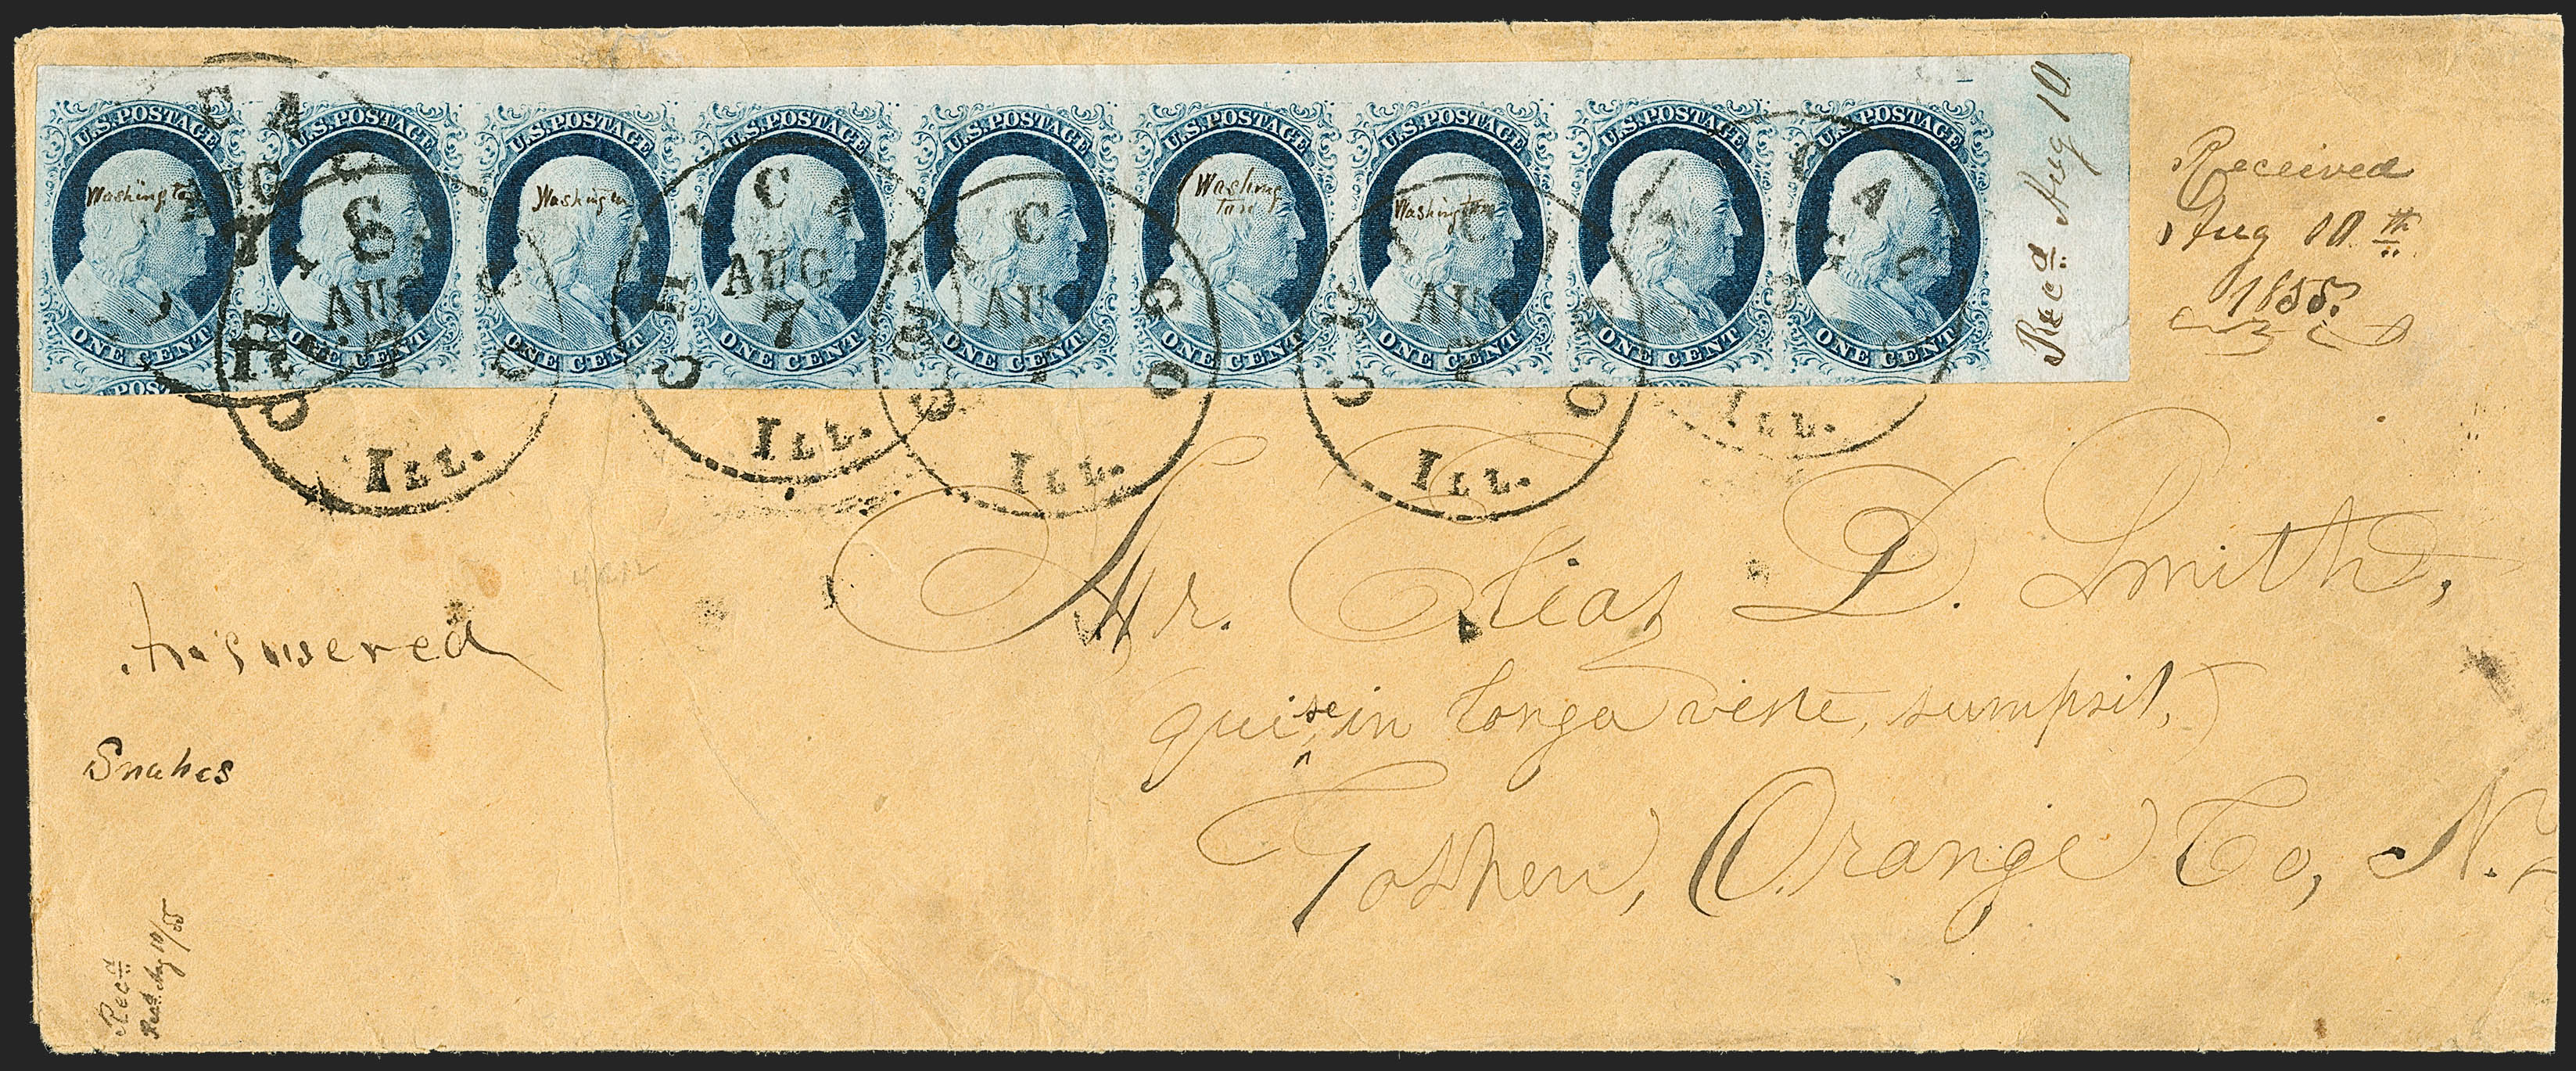 U.S.POSTAGE U.S.POSTAGE U.S.POSTAGE U.S.POSTAGE U.S.POSTAGE U.S.POSTAGE U.S.POSTAGE U.S.POSTAGE U.S.POSTAGE
Washington Washington Washing
ton Washington
ONE CENT ONE CENT ONE CENT ONE CENT ONE CENT ONE CENT ONE CENT ONE CENT ONE CENT
CHICAGO
AUG
7
ILL.
CHICAGO
AUG
7
ILL.
CHICAGO
AUG
7
ILL.
CHICAGO
AUG
7
ILL.
ILL.
Recd. Aug 10
Received
Aug 10th
1855.
Mr. Elias D. Smith,
qui, se in longa veste, sumpsit,)
Goshen, Orange Co, N.
Answered
Snakes
Recd
Aug 10/55